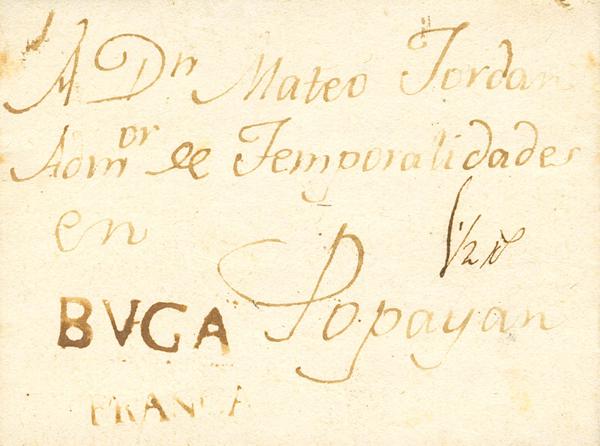 A Dn Mateo Jordan
Admor de Temporalidades
en
Popayan
1/2
BVGA
FRANCA